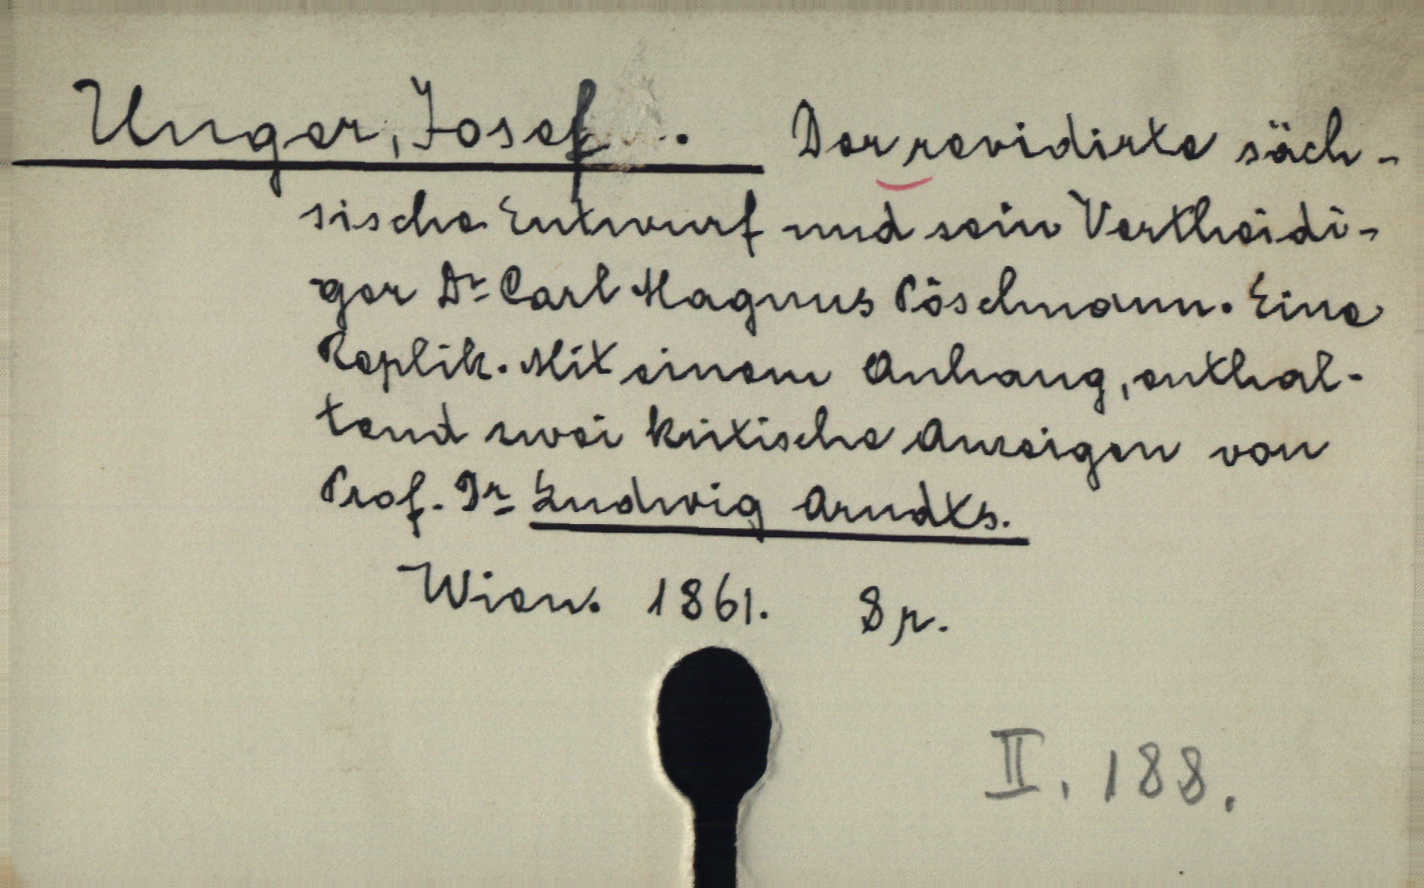 Unger, Josef. Der revidirte säch-
sische Entwurf und sein Vertheidi-
ger Dr Carl Magnus Pöschmann. Eine
Replik. Mit einem Anhang, enthal-
tend zwei kritische Anzeigen von
Prof. Dr Ludwig Arndts.
Wien. 1861. 8 r.
II. 188.